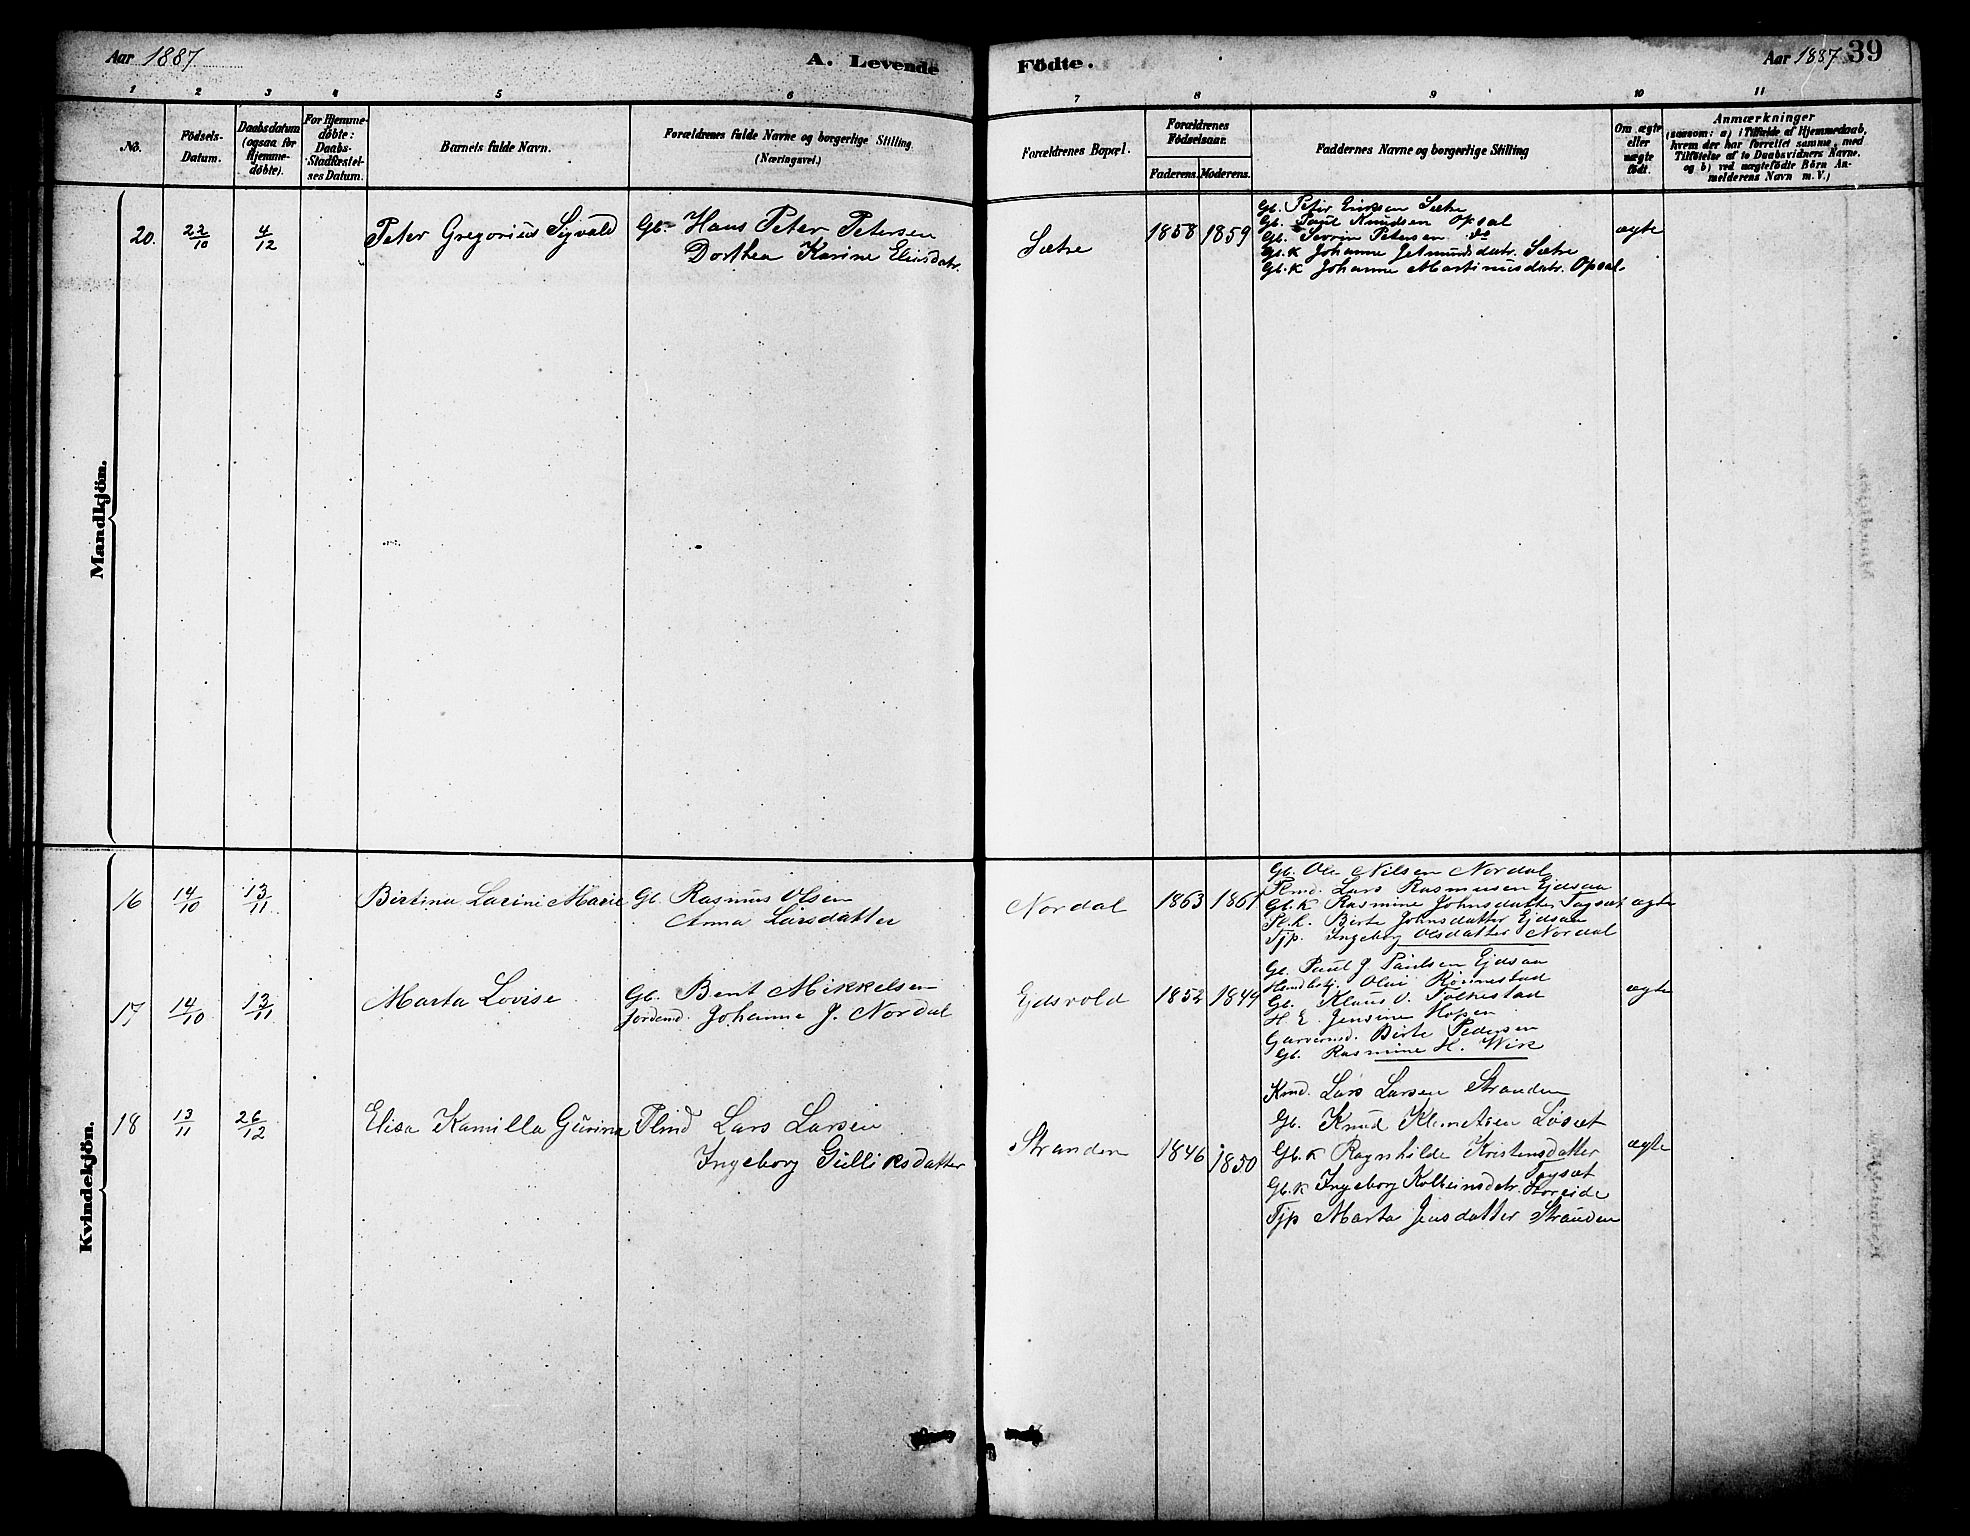 Aar 1887
A. Levende
Födte.
Aar 1887
39
1 2 3 4 5 6 7 8 9 10 11
No.
Födsels-
Datum.
Daabsdatum
(ogsaa for
Hjemme-
döbte).
For Hjemme-
døbte:
Daabs-
Stadfæstel-
ses Datum.
Barnets fulde Navn.
Forældrenes fulde Navne og borgerlige Stilling
(Næringsvei.)
Forældrenes Bopæl.
Forældrenes
Födselsaar.
Faderens. Moderens.
Faddernes Navne og borgerlige Stilling
Om ægte
eller
uægte
födt.
Anmærkninger
(saasom: a) i Tilfælde af Hjemmedaab,
hvem der har forrettet samme, med
Tilföielse af to Daabsvidners Navne.
og b) ved uægtefödte Börn An-
melderens Navn m. V.)
Mandkjön.
20. 22/10 4/12
Peter Gregorius Sigvald
Gb. Hans Peter Petersen
Dorthea Karine Eliasdatr.
Sætre
1858 1859
Gb. Peter Eriksen Sætre
Gb. Paul Knudsen Opsal
Gb. Severin Petersen do
Gb. K Johanne Jetmundsdatr. Sætre
Gb. K Johanne Martinusdatr. Opsal
ægte
Kvindekjön.
16 14/10 13/11.
Birtina Larine Marie
Gb. Rasmus Olsen
Anna Larsdatter
Nordal
1863 1861
Gb. Ole Nilsen Nordal
Plmd. Lars Rasmusen Ejdsaa
Gb. K Rasmine Johnsdatter Tagsæt
Pl. k. Birte Johnsdatter Ejdsaa
Tjp. Ingeborg Olsdatter Nordal
ægte
17 14/10 13/11
Marta Lovise
Gb. Bent Mikkelsen
Jordemd. Johanne J. Nordal
Ejdsvold
1852 1849
Gb. Paul J. Paulsen Ejdsaa
Handlbtj. Olai Rönnestad
Gb. Klaus O. Folkestad
H E. Jensine Hopen
Garvermd. Birte Pedersen
Gb. Rasmine H. Wik
ægte
18 13/11 26/12
Elisa Kamilla Gurina
Plmd Lars Larsen
Ingeborg Gulliksdatter
Stranden
1846 1850
Kmd. Lars Larsen Stranden
Gb. Knud Klemetsen Løsæt
Gb. K Ragnhilde Kristensdatter
Tagsæt
Gb. K Ingeborg Kolbeinsdatr. Storeide
Tjp Marta Jensdatter Stranden
ægte